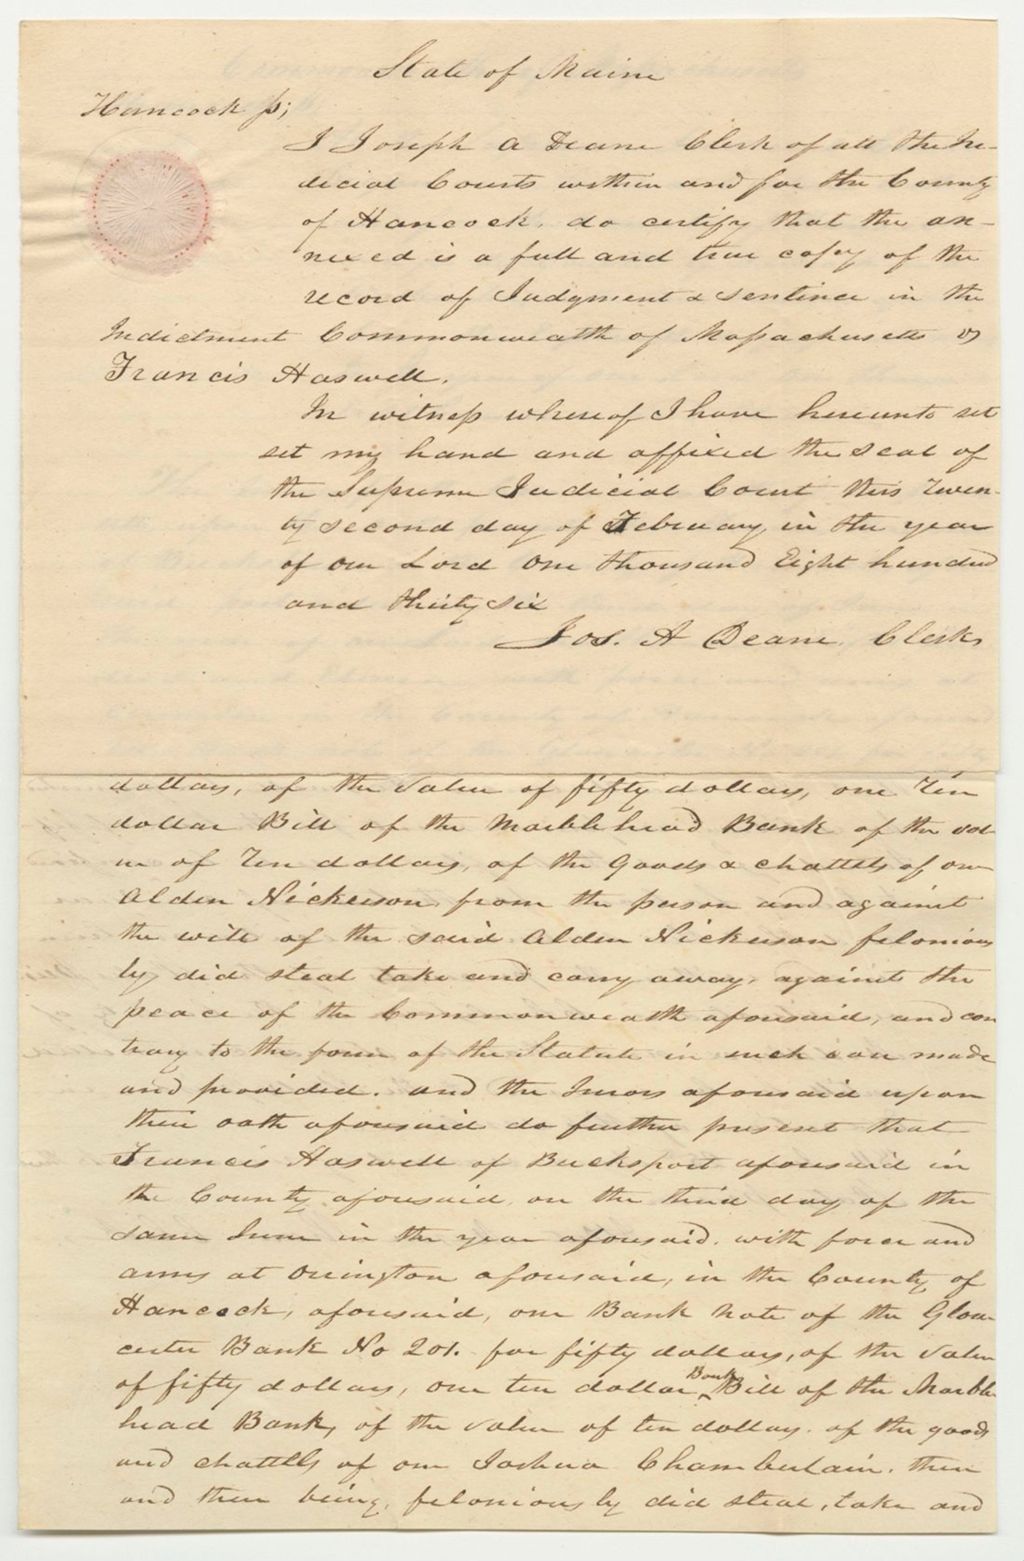 State of Maine
Hancock ss;
I Joseph A Deane Clerk of all the Ju-
dicial Courts within and for the County
of Hancock, do certify that the an-
nexed is a full and true copy of the
record of Judgment & Sentence in the
Indictment Commonwealth of Massachusetts vs
Francis Haswell.
In witness whereof I have hereunto set
set my hand and affixed the seal of
the Supreme Judicial Court this Twen-
ty second day of February in the year
of our Lord One thousand Eight hundred
and thirty six
Jos. A Deane Clerk
dollars, of the value of fifty dollars, one Ten
dollar Bill of the Marblehead Bank of the val
ue of Ten dollars, of the Goods & chattels of one
Alden Nickerson from the person and against
the will of the said Alden Nickerson felonious
ly did steal take and carry away, against the
peace of the Commonwealth aforesaid, and con
trary to the form of the Statute in such case made
and provided. and the Jurors aforesaid upon
their oath aforesaid do further present that
Francis Haswell of Bucksport aforesaid in
the County aforesaid on the third day of the
same June in the year aforesaid, with force and
arms at Orrington aforesaid, in the County of
Hancock, aforesaid, one Bank note of the Glou
cester Bank No 201. for fifty dollars, of the value
of fifty dollars, one ten dollar Bank Bill of the Marble
head Bank, of the value of ten dollars. of the goods
and chattells of one Joshua Chamberlain. then
and there being, feloniously did steal, take and